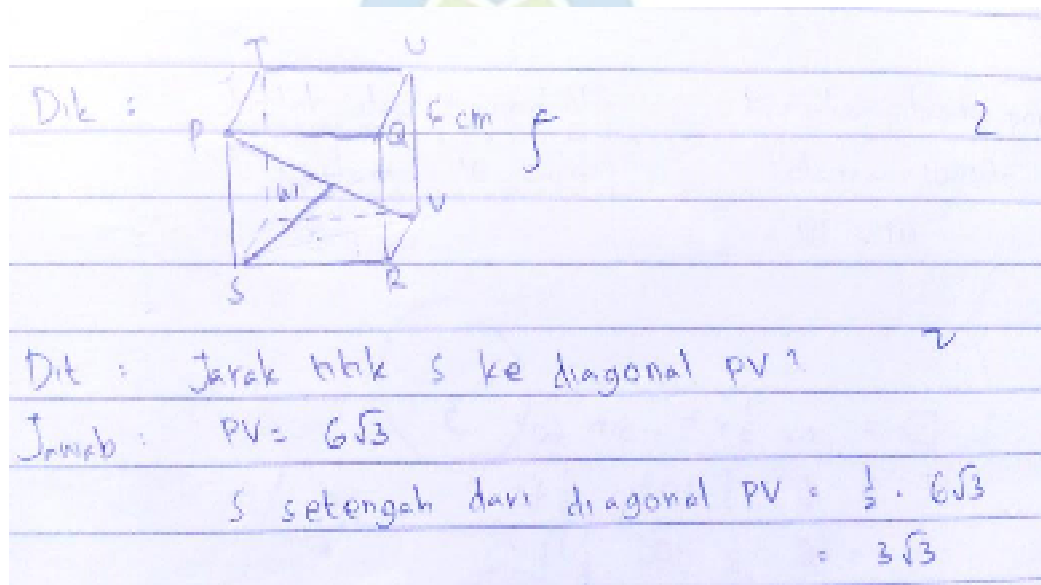 T U
Dik :
P Q 6 cm 2
W V
S R
Dit : Jarak titik S ke diagonal PV ? 2
Jawab : PV = 6√3
S setengah dari diagonal PV = 1/2 . 6√3
= 3√3